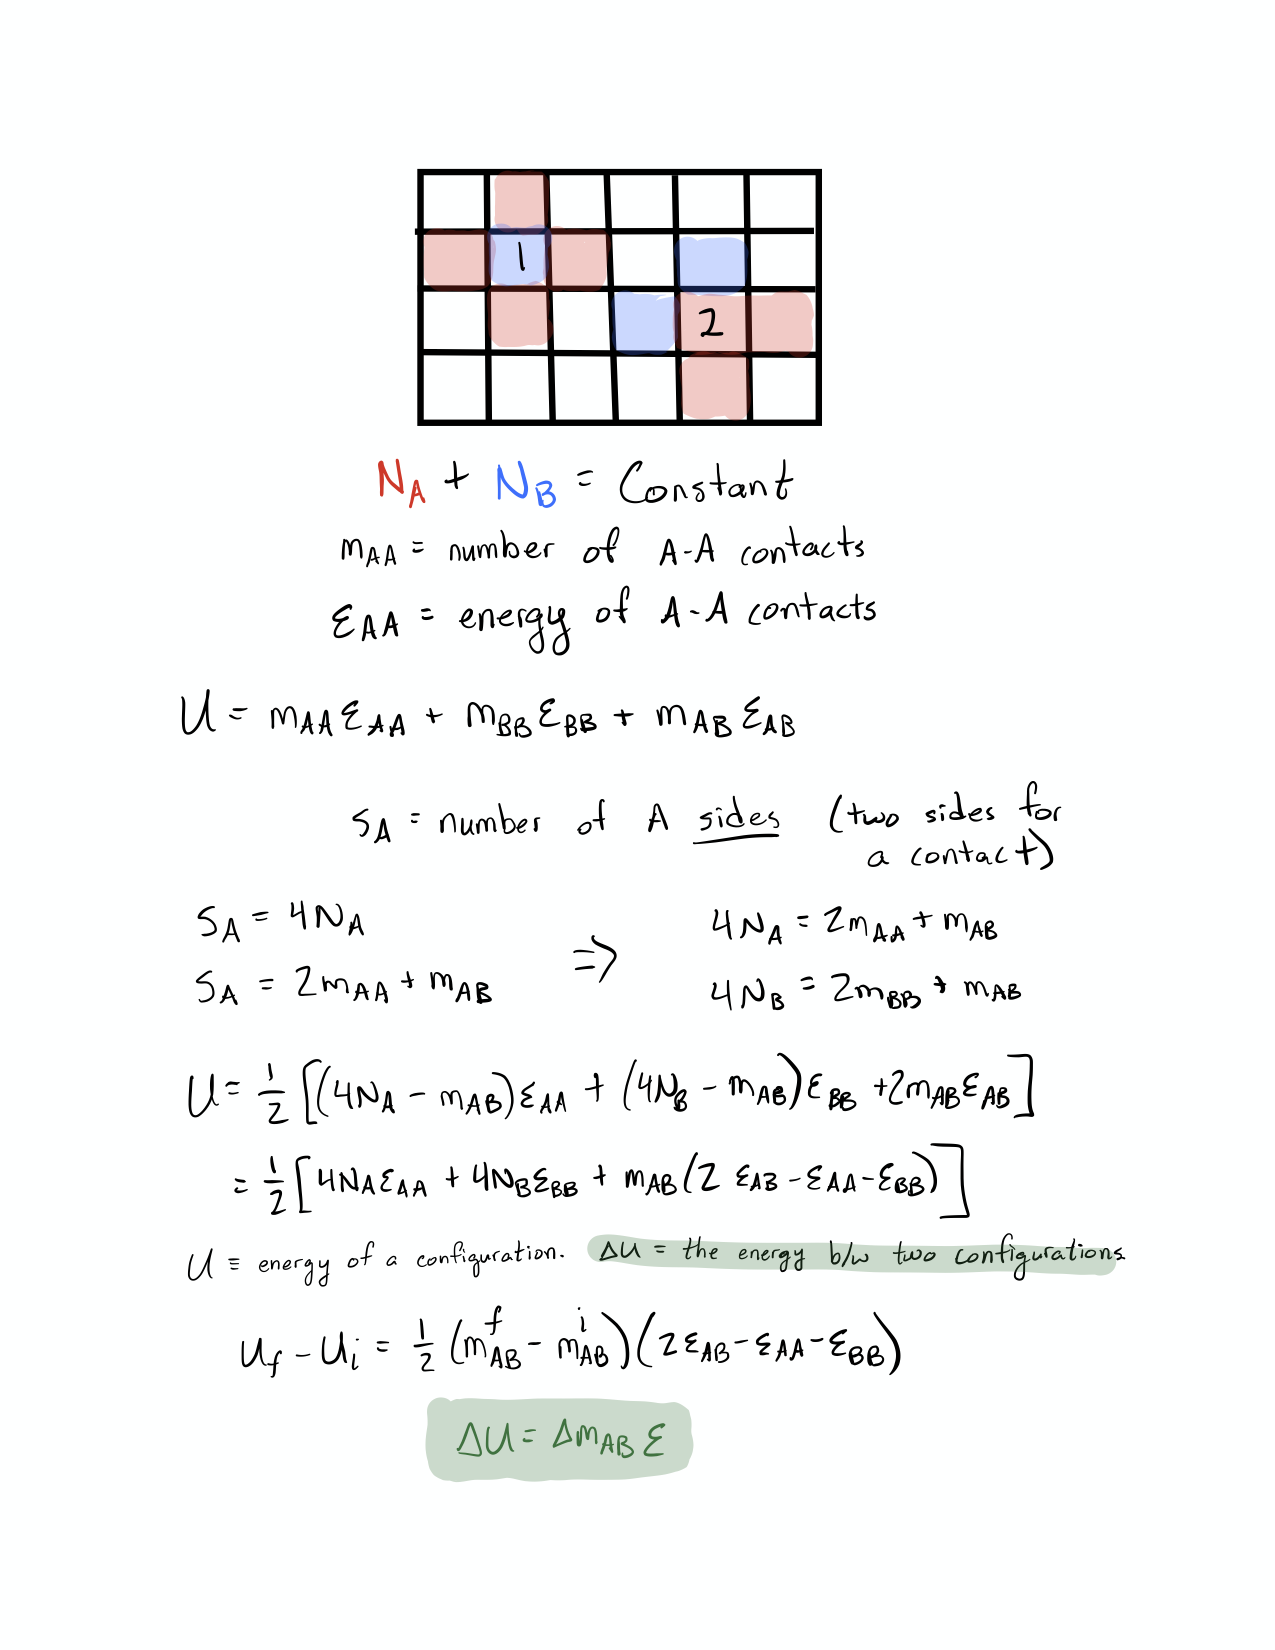 1
2
N_A + N_B = Constant
m_AA = number of A-A contacts
ε_AA = energy of A-A contacts
U = m_AA ε_AA + m_BB ε_BB + m_AB ε_AB
S_A = number of A sides (two sides for
a contact)
S_A = 4N_A
S_A = 2m_AA + m_AB
⇒
4N_A = 2m_AA + m_AB
4N_B = 2m_BB + m_AB
U = 1/2 [(4N_A - m_AB)ε_AA + (4N_B - m_AB)ε_BB + 2m_AB ε_AB]
= 1/2 [4N_A ε_AA + 4N_B ε_BB + m_AB (2 ε_AB - ε_AA - ε_BB)]
U ≡ energy of a configuration. ΔU = the energy b/w two configurations.
U_f - U_i = 1/2 (m_AB^f - m_AB^i)(2ε_AB - ε_AA - ε_BB)
ΔU = Δm_AB ε